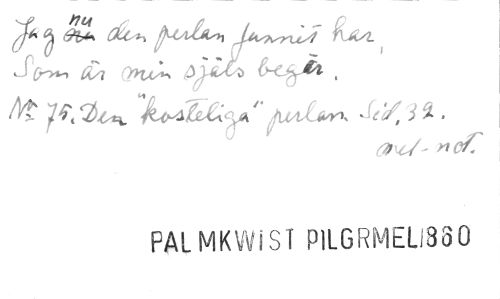 Jag nu den perlan funnit har,
Som är min själs begär.
No 75. Den "kosteliga" perlan Sid. 32.
mel-not.
PALMKWIST PILGRMEL1860